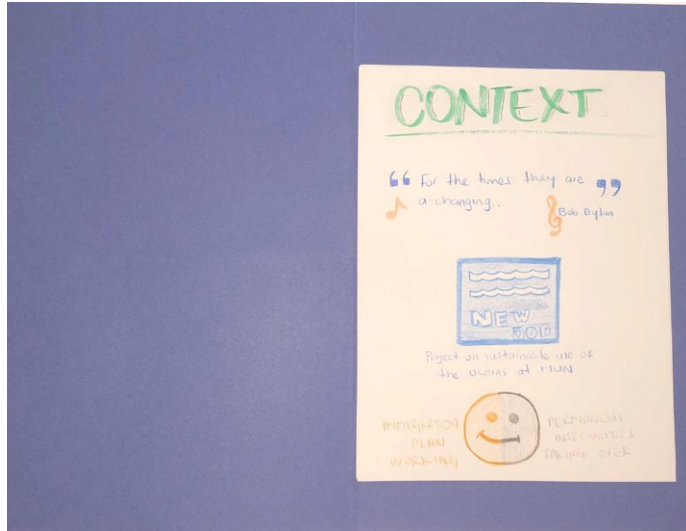 CONTEXT
“ For the times they are ”
a-changing...
Bob Dylan
NEW
JOB
Project on sustainable use of
the oceans at MUN
IMMIGRATION
PLAN
WORKING
TAKING OVER